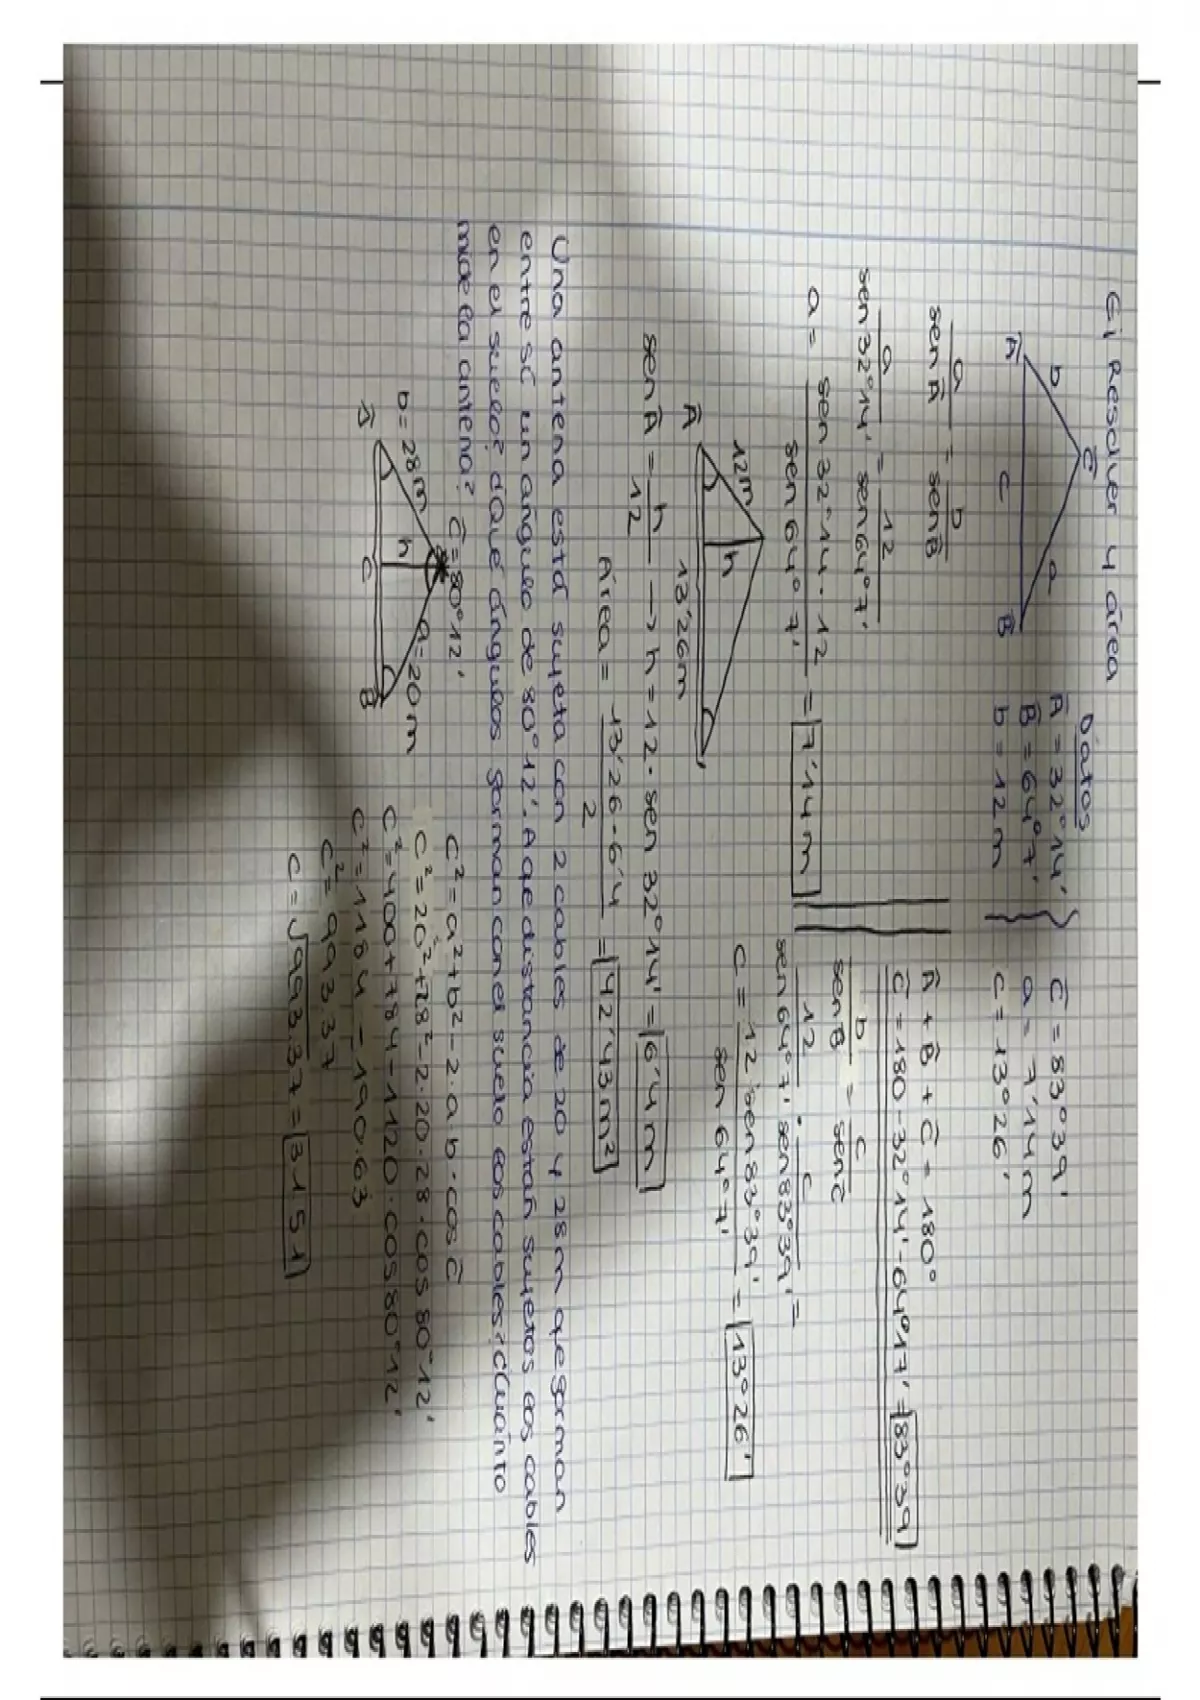 Ej Resolver y área
Datos
Â = 32º14'
B̂ = 64º7'
b = 12m
Ĉ = 83º39'
a = 7'14m
c = 13º26'
Ĉ
b
a
Â
c
B̂
a/sen Â = b/sen B̂
a/sen 32º14' = 12/sen 64º7'
a = sen 32º14 · 12/sen 64º7' = 7'14m
Â + B̂ + Ĉ = 180º
Ĉ = 180 - 32º14' - 64º17' = 83º39
b/sen B̂ = c/sen Ĉ
12/sen 64º7' · c/sen 83º39' =
c = 12 · sen 83º39'/sen 64º7' = 13º26'
12m
h
Â
13'26m
sen Â = h/12 → h = 12 · sen 32º14' = 6'4m
Área = 13'26 · 6'4/2 = 42'43m²
Una antena está sujeta con 2 cables de 20 y 28m que forman
entre sí un ángulo de 80º12'. A que distancia estan sujetos los cables
en el suelo? ¿Qué ángulos forman con el suelo los cables? ¿Cuánto
mide la antena?
Ĉ = 80º12'
b = 28m
a = 20m
h
Â
C
B̂
c² = a² + b² - 2 · a · b · cos Ĉ
c² = 20² + 28² - 2 · 20 · 28 · cos 80º12'
c² = 400 + 784 - 1120 · cos 80º12'
c² = 1184 - 190.63
c² = 993.37
c = √993.37 = 31'51